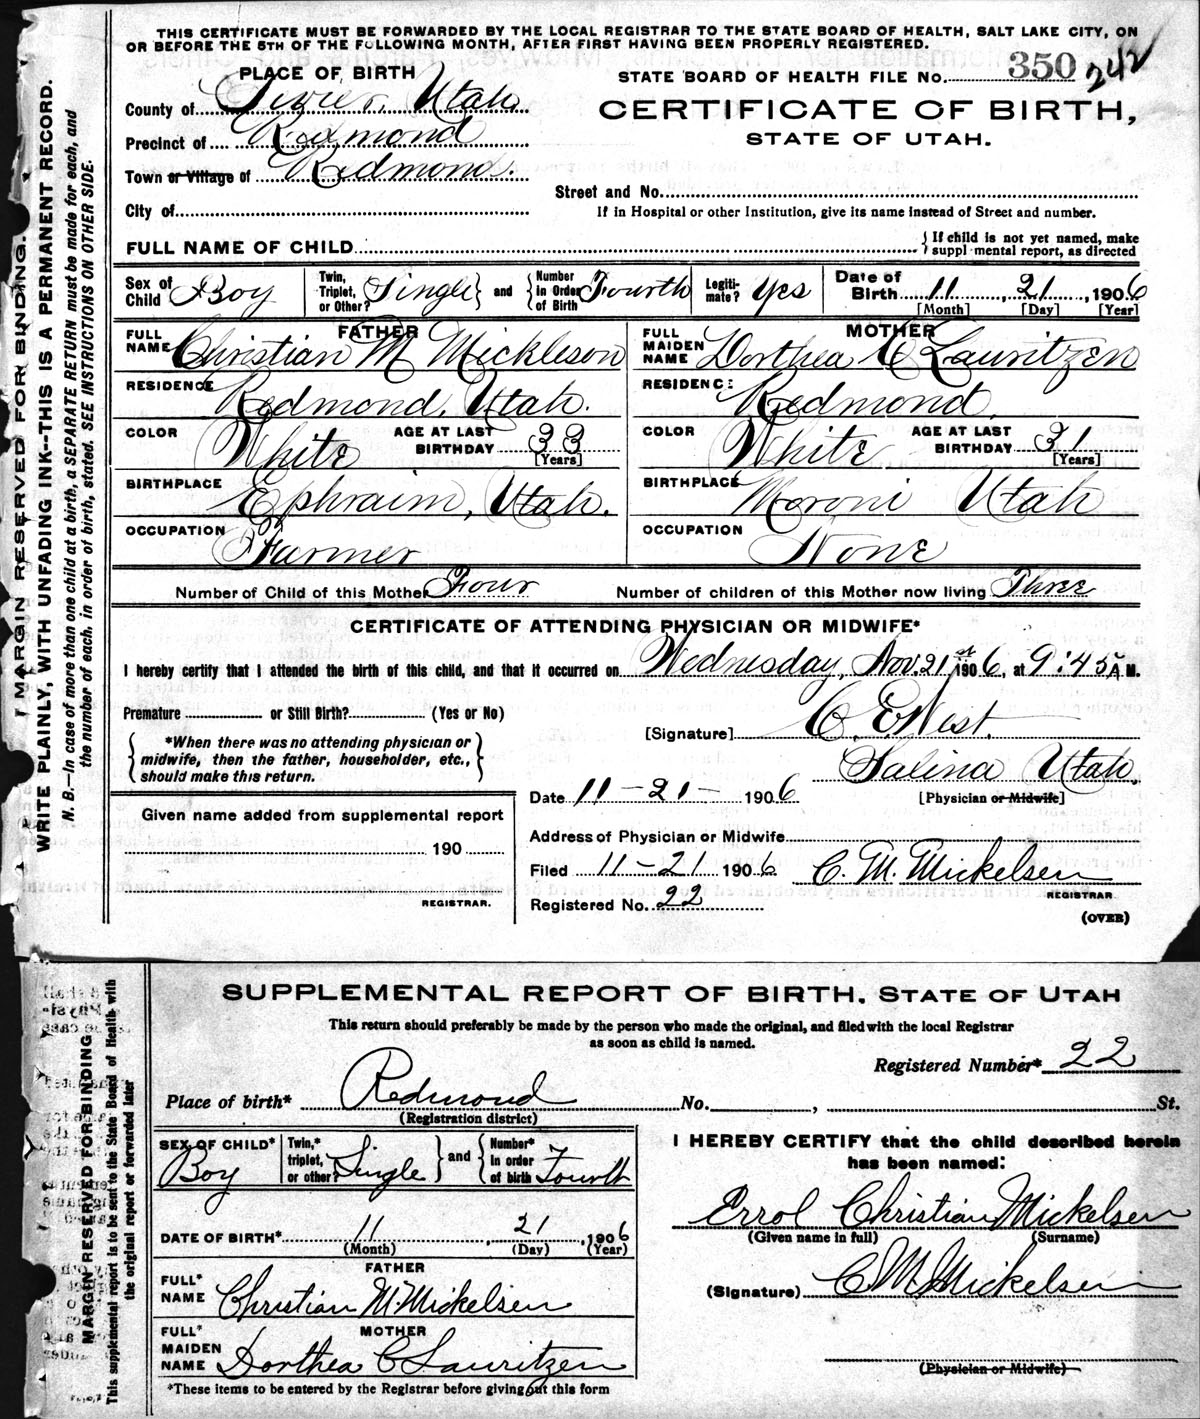 THIS CERTIFICATE MUST BE FORWARDED BY THE LOCAL REGISTRAR TO THE STATE BOARD OF HEALTH, SALT LAKE CITY, ON
OR BEFORE THE 5TH OF THE FOLLOWING MONTH, AFTER FIRST HAVING BEEN PROPERLY REGISTERED.
PLACE OF BIRTH
STATE BOARD OF HEALTH FILE No. 350 242
County of Sevier, Utah
CERTIFICATE OF BIRTH,
Precinct of Redmond
STATE OF UTAH.
Town or Village of Redmond.
Street and No.
City of
If in Hospital or other Institution, give its name instead of Street and number.
FULL NAME OF CHILD
If child is not yet named, make
supplmental report, as directed
Sex of Child Boy
Twin, Triplet, or Other? Single and Number in Order of Birth Fourth
Legitimate? Yes
Date of Birth 11, 21, 1906
[Month] [Day] [Year]
FATHER
FULL NAME Christian M Mickleson
MOTHER
FULL MAIDEN NAME Dorthea C Lauritzen
RESIDENCE Redmond, Utah.
RESIDENCE Redmond.
COLOR White AGE AT LAST BIRTHDAY 33 [Years]
COLOR White AGE AT LAST BIRTHDAY 31 [Years]
BIRTHPLACE Ephraim, Utah.
BIRTHPLACE Moroni Utah
OCCUPATION Farmer
OCCUPATION None
Number of Child of this Mother Four
Number of children of this Mother now living Three
CERTIFICATE OF ATTENDING PHYSICIAN OR MIDWIFE*
I hereby certify that I attended the birth of this child, and that it occurred on Wednesday, Nov. 21st 1906, at 9:45 A M.
Premature or Still Birth? (Yes or No)
[Signature] C. E. West.
*When there was no attending physician or
midwife, then the father, householder, etc.,
should make this return.
Salina Utah.
Date 11-21- 1906
[Physician or Midwife]
Given name added from supplemental report
190
REGISTRAR.
Address of Physician or Midwife
Filed 11-21 1906 C. M. Mickelsen
REGISTRAR
Registered No. 22
(OVER)
MARGIN RESERVED FOR BINDING.
WRITE PLAINLY, WITH UNFADING INK--THIS IS A PERMANENT RECORD.
N. B.—In case of more than one child at a birth, a SEPARATE RETURN must be made for each, and
the number of each, in order of birth, stated. SEE INSTRUCTIONS ON OTHER SIDE.
SUPPLEMENTAL REPORT OF BIRTH. STATE OF UTAH
This return should preferably be made by the person who made the original, and filed with the local Registrar
as soon as child is named.
Registered Number* 22
Place of birth* Redmond No. , St.
(Registration district)
SEX OF CHILD* Boy
Twin,* triplet, or other? Single and Number* in order of birth Fourth
I HEREBY CERTIFY that the child described herein
has been named:
Errol Christian Mickelsen
(Given name in full) (Surname)
DATE OF BIRTH* 11, 21, 1906
(Month) (Day) (Year)
FATHER
FULL* NAME Christian M. Mickelsen
(Signature) C M Mickelsen
MOTHER
FULL* MAIDEN NAME Dorthea C Lauritzen
(Physician or Midwife)
*These items to be entered by the Registrar before giving out this form
MARGIN RESERVED FOR BINDING
This supplemental report is to be sent to the State Board of Health with
the original report or forwarded later